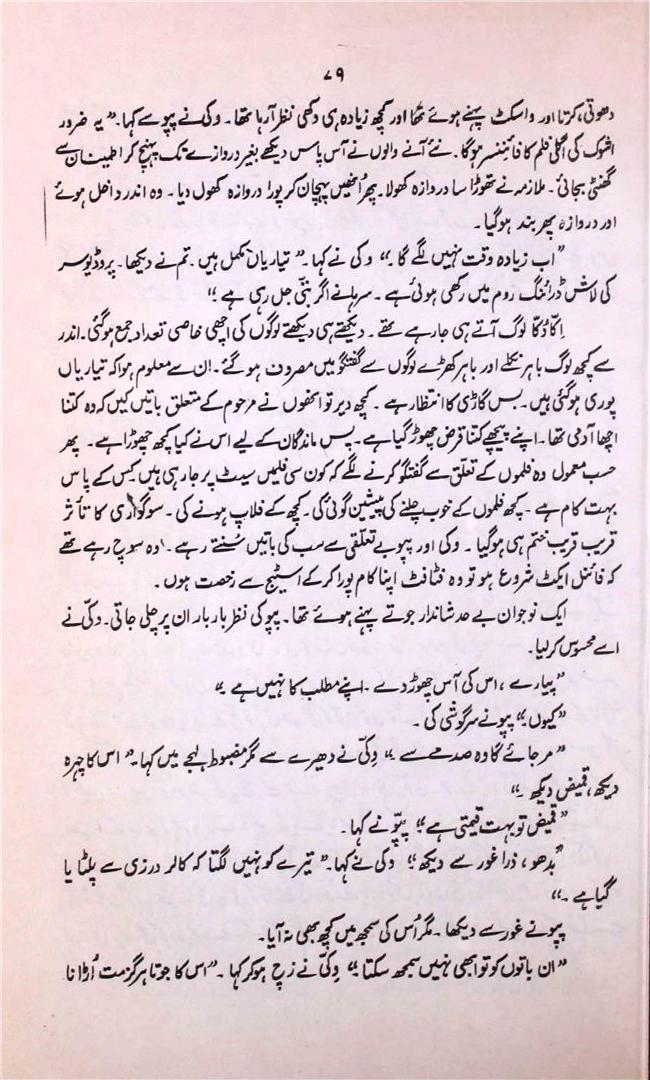 ۷۹
دھوتی، کرتا اور واسکٹ پہنے ہوئے تھا اور کچھ زیادہ ہی دکھی نظر آ رہا تھا۔ وکی نے پپو سے کہا۔ ”یہ ضرور
اشوک کی اگلی فلم کا فائننسر ہوگا۔ نئے آنے والوں نے آس پاس دیکھے بغیر دروازے تک پہنچ کر اطمینان سے
گھنٹی بجائی۔ ملازمہ نے تھوڑا سا دروازہ کھولا۔ پھر اُنھیں پہچان کر پورا دروازہ کھول دیا۔ وہ اندر داخل ہوئے
اور دروازہ پھر بند ہوگیا۔
”اب زیادہ وقت نہیں لگے گا۔“ وکی نے کہا۔ ”تیاریاں مکمل ہیں۔ تم نے دیکھا۔ پروڈیوسر
کی لاش ڈرائنگ روم میں رکھی ہوئی ہے۔ سرہانے اگر بتّی جل رہی ہے“
اِکّا دُکّا لوگ آتے ہی جا رہے تھے۔ دیکھتے ہی دیکھتے لوگوں کی اچھی خاصی تعداد جمع ہوگئی۔ اندر
سے کچھ لوگ باہر نکلے اور باہر کھڑے لوگوں سے گفتگو میں مصروف ہو گئے۔ ان سے معلوم ہوا کہ تیاریاں
پوری ہوگئی ہیں۔ بس گاڑی کا انتظار ہے۔ کچھ دیر تو انھوں نے مرحوم کے متعلق باتیں کیں کہ وہ کتنا
اچھا آدمی تھا۔ اپنے پیچھے کتنا قرض چھوڑ گیا ہے۔ پس ماندگان کے لیے اس نے کیا کچھ چھوڑا ہے۔ پھر
حسب معمول وہ فلموں کے تعلق سے گفتگو کرنے لگے کہ کون سی فلمیں سیٹ پر جا رہی ہیں۔ کس کے پاس
بہت کام ہے۔ کچھ فلموں کے خوب چلنے کی پیشین گوئی کی۔ کچھ کے فلاپ ہونے کی۔ سوگواری کا تأثر
قریب قریب ختم ہی ہوگیا۔ وکی اور پپو بے تعلقی سے سب کی باتیں سُنتے رہے۔ وہ سوچ رہے تھے
کہ فائنل ایکٹ شروع ہو تو وہ فٹافٹ اپنا کام پورا کرکے اسٹیج سے رخصت ہوں۔
ایک نوجوان بے حد شاندار جوتے پہنے ہوئے تھا۔ پپو کی نظر بار بار ان پر چلی جاتی۔ وکّی نے
اسے محسوس کرلیا۔
”پیارے، اس کی آس چھوڑ دے۔ اپنے مطلب کا نہیں ہے۔“
”کیوں؟“ پپو نے سرگوشی کی۔
”مر جائے گا وہ صدمے سے۔“ وکّی نے دھیرے سے مگر مضبوط لہجے میں کہا۔ ”اس کا چہرہ
دیکھ، قمیض دیکھ۔“
”قمیض تو بہت قیمتی ہے“ پپّو نے کہا۔
”بُدھو، ذرا غور سے دیکھ“ وکی نے کہا۔ ”تیرے کو نہیں لگتا کہ کالر درزی سے پلٹایا
گیا ہے۔“
پپو نے غور سے دیکھا۔ مگر اُس کی سمجھ میں کچھ بھی نہ آیا۔
”ان باتوں کو تو ابھی نہیں سمجھ سکتا“ وکّی نے زچ ہو کر کہا۔ ”اس کا جوتا ہرگز مت اُڑانا